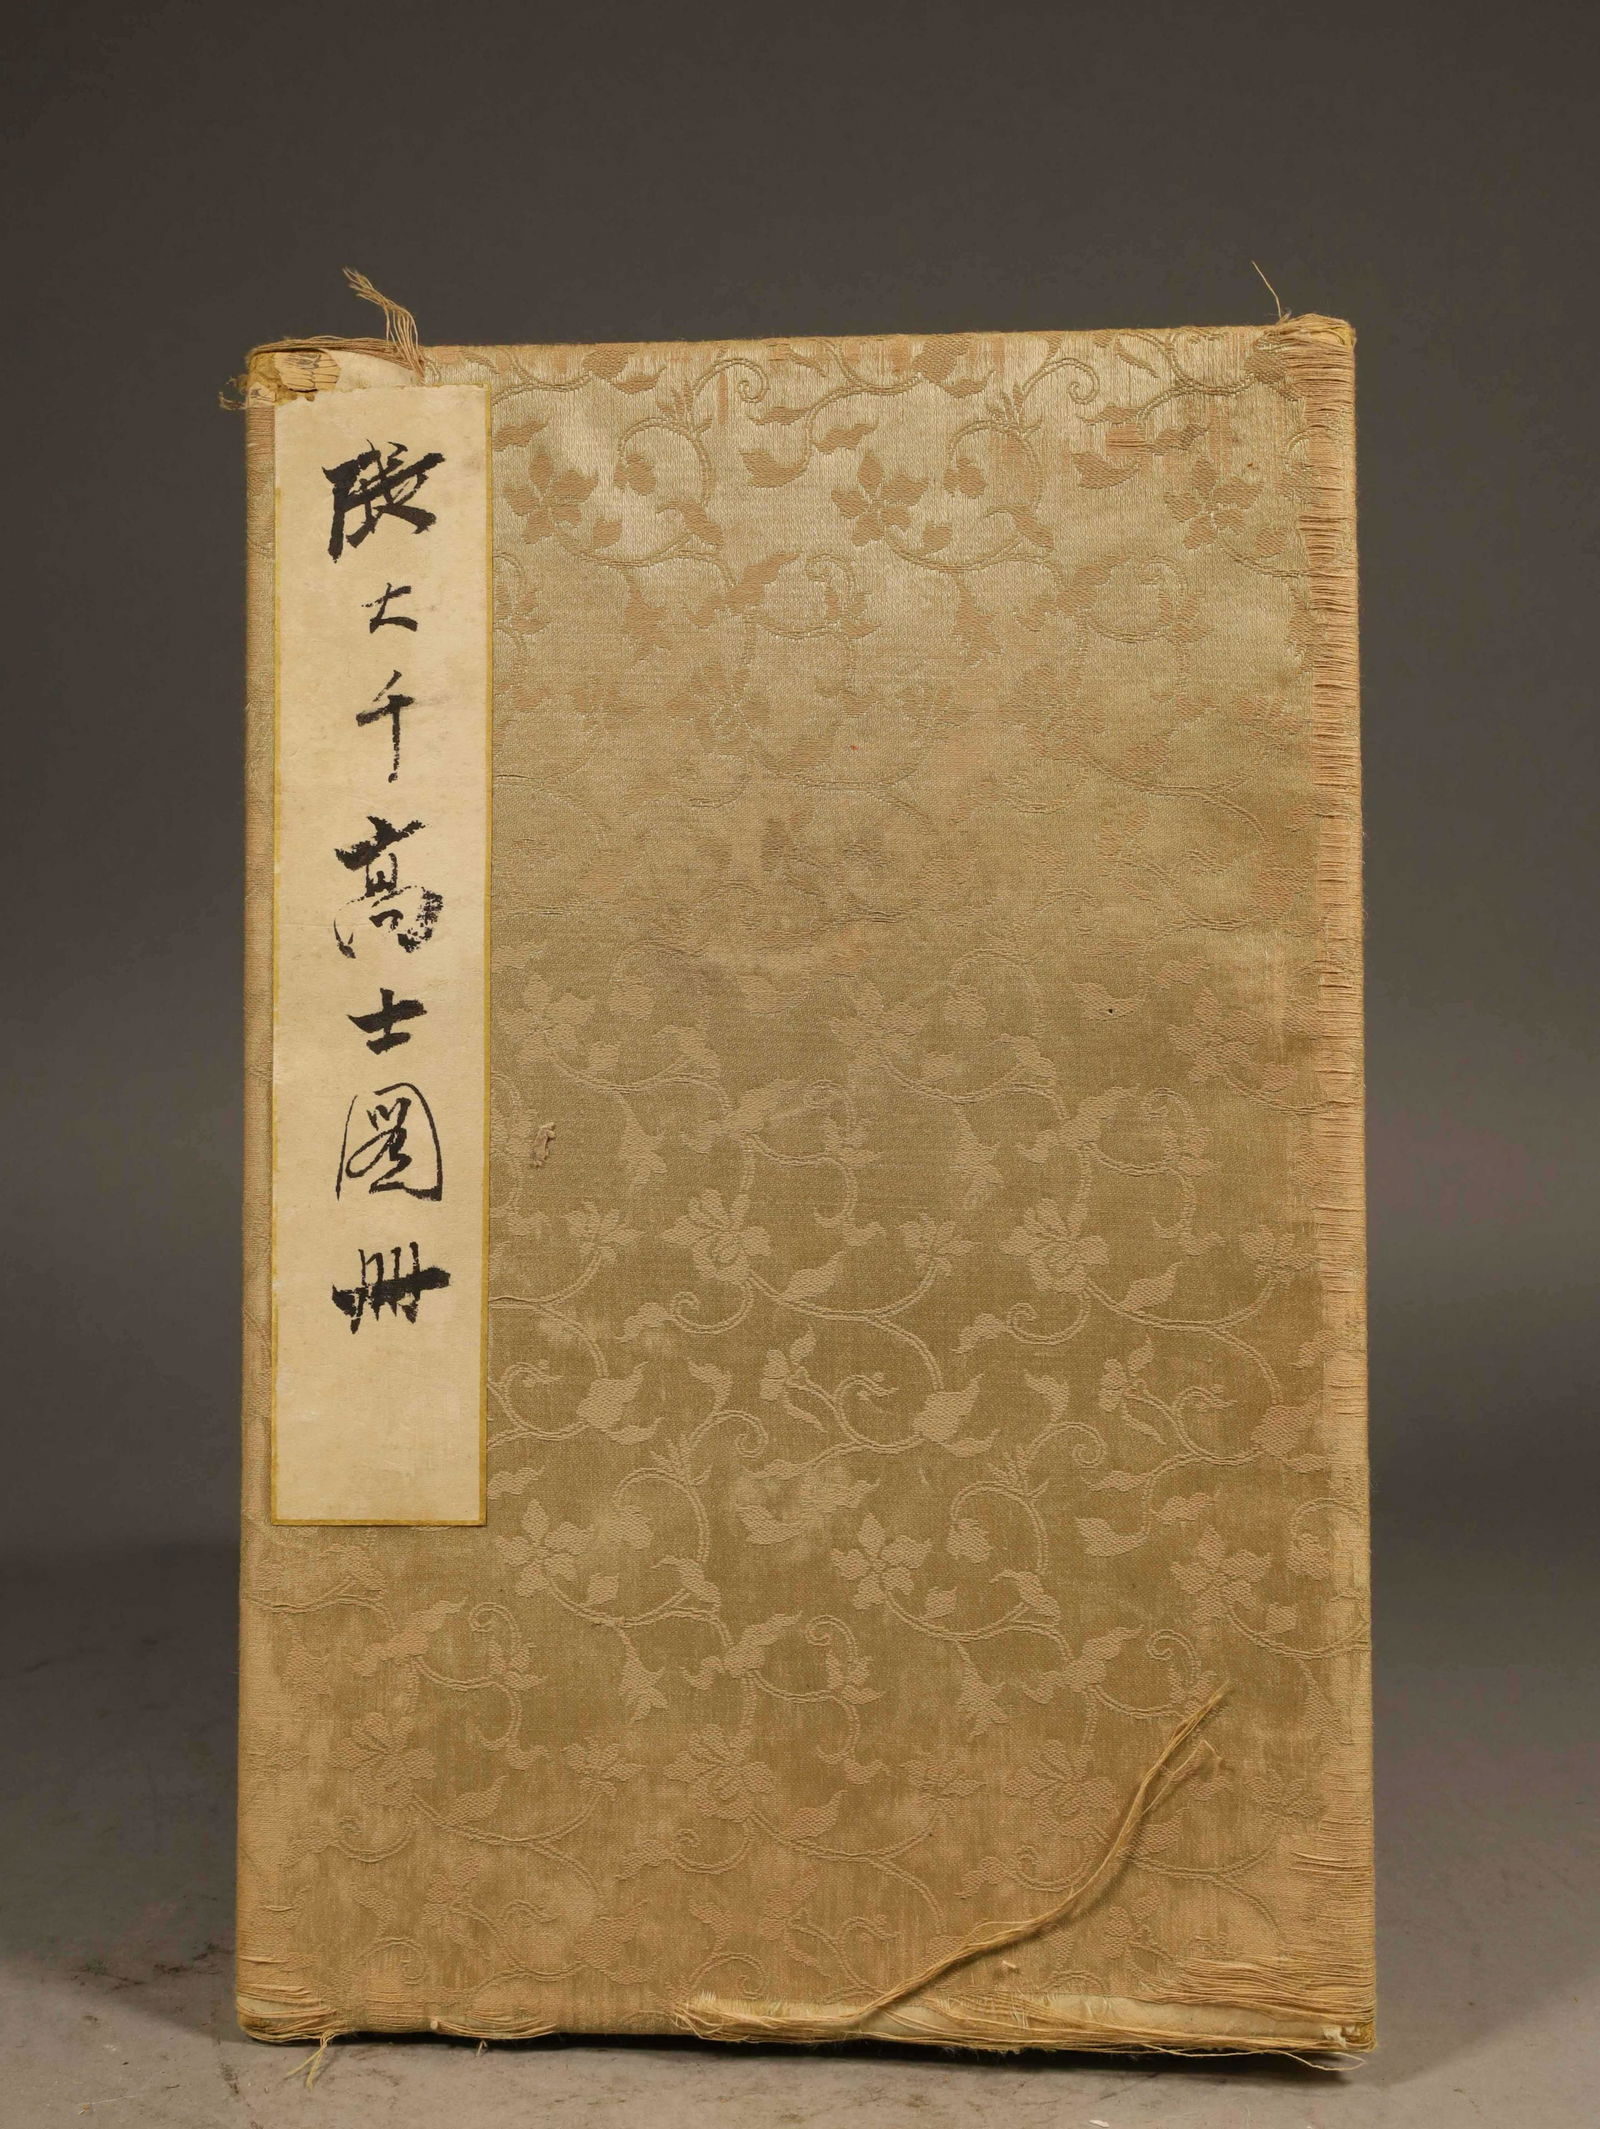 張大千高士圖冊